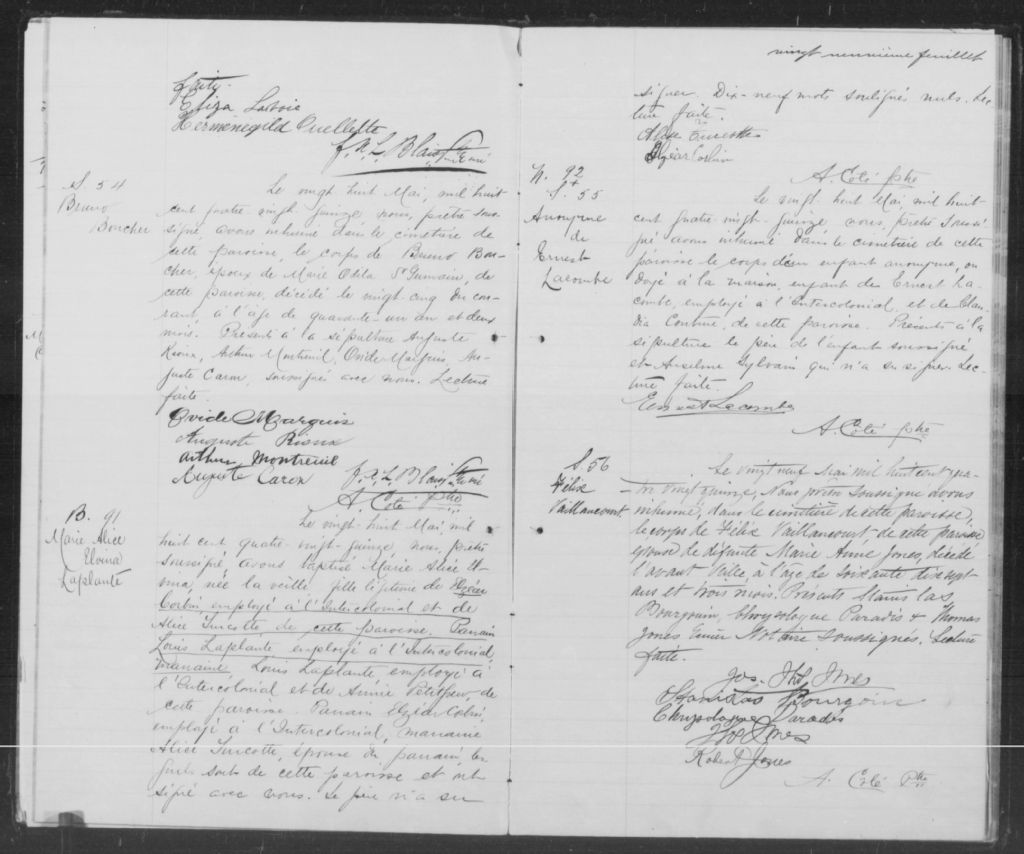 faite.
Eliza Lavoie
Herménégild Ouellette
J. A. L. Blais Ptre Curé
S. 54
Bruno
Boucher
Le vingt huit Mai, mil huit
cent quatre vingt quinze nous, prêtre sous-
signé avons inhumé dans le cimetière de
cette paroisse, le corps de Bruno Bou-
cher, époux de Marie Odila St Germain, de
cette paroisse, décédé le vingt-cinq du cou-
rant, à l'age de quarante-un an et deux
mois. Présents à la sépulture Auguste
Rioux, Arthur Montreuil, Ovide Marquis, Au-
guste Caron, soussignés avec nous. Lecture
faite.
Ovide Marquis
Auguste Rioux
Arthur Montreuil
Auguste Caron
J. A. L. Blais Ptre Curé
A. Coté Ptre
B. 91
Marie Alice
Elvina
Laplante
Le vingt-huit Mai, mil
huit cent quatre-vingt-quinze, nous, prêtre
soussigné, avons baptisé Marie Alice El-
vina, née la veille, fille légitime de Elzéar
Corbin, employé à l'Intercolonial et de
Alice Turcotte de cette paroisse. Parrain
Louis Laplante employé à l'Intercolonial,
marraine, Louis Laplante, employé à
l'Intercolonial et de Annie Petitgrew, de
cette paroisse. Parrain Elzéar Corbin,
employé à l'Intercolonial, marraine
Alice Turcotte, épouse du parrain, les-
quels sont de cette paroisse et ont
signé avec nous. Le père n'a su
vingt neuvième feuillet
signer. Dix-neuf mots soulignés nuls. Lec-
ture faite.
Alice Turcotte
Elzéar Corbin
A. Coté Ptre
N. 92
S. 55
Anonyme
de
Ernest
Lacombe
Le vingt huit Mai, mil huit-
cent quatre-vingt-quinze, nous, prêtre soussi-
gné avons inhumé dans le cimetière de cette
paroisse le corps d'un enfant anonyme, on-
doyé à la maison, enfant de Ernest La-
combe, employé à l'Intercolonial, et de Clau-
dia Couture, de cette paroisse. Présents à la
sépulture le père de l'enfant soussigné
et Anselme Sylvain qui n'a su signer. Lec-
ture faite.
Ernest Lacombe
A. Coté Ptre
S. 56
Félix
Vaillancourt
Le vingt neuf Mai mil huit cent qua-
tre vingt quinze, Nous prêtre soussigné avons
inhumé, dans le cimetière de cette paroisse,
le corps de Félix Vaillancourt, de cette paroisse
epoux de défunte Marie Anne Jones, décédé
l'avant veille, à l'age de soixante dix sept
ans et trois mois. Présents Stanislas
Bourgouin, Chrysologue Paradis & Thomas
Jones Ecuier Notaire soussignés. Lecture
faite.
Jos. Ths Jones
Stanislas Bourgoin
Chrysologue Paradis
Ths Jones
Robert Jones
A. Coté Ptre